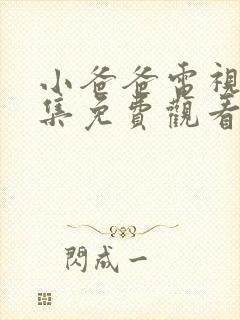 小爸爸電視
集免費觀看
閃成一